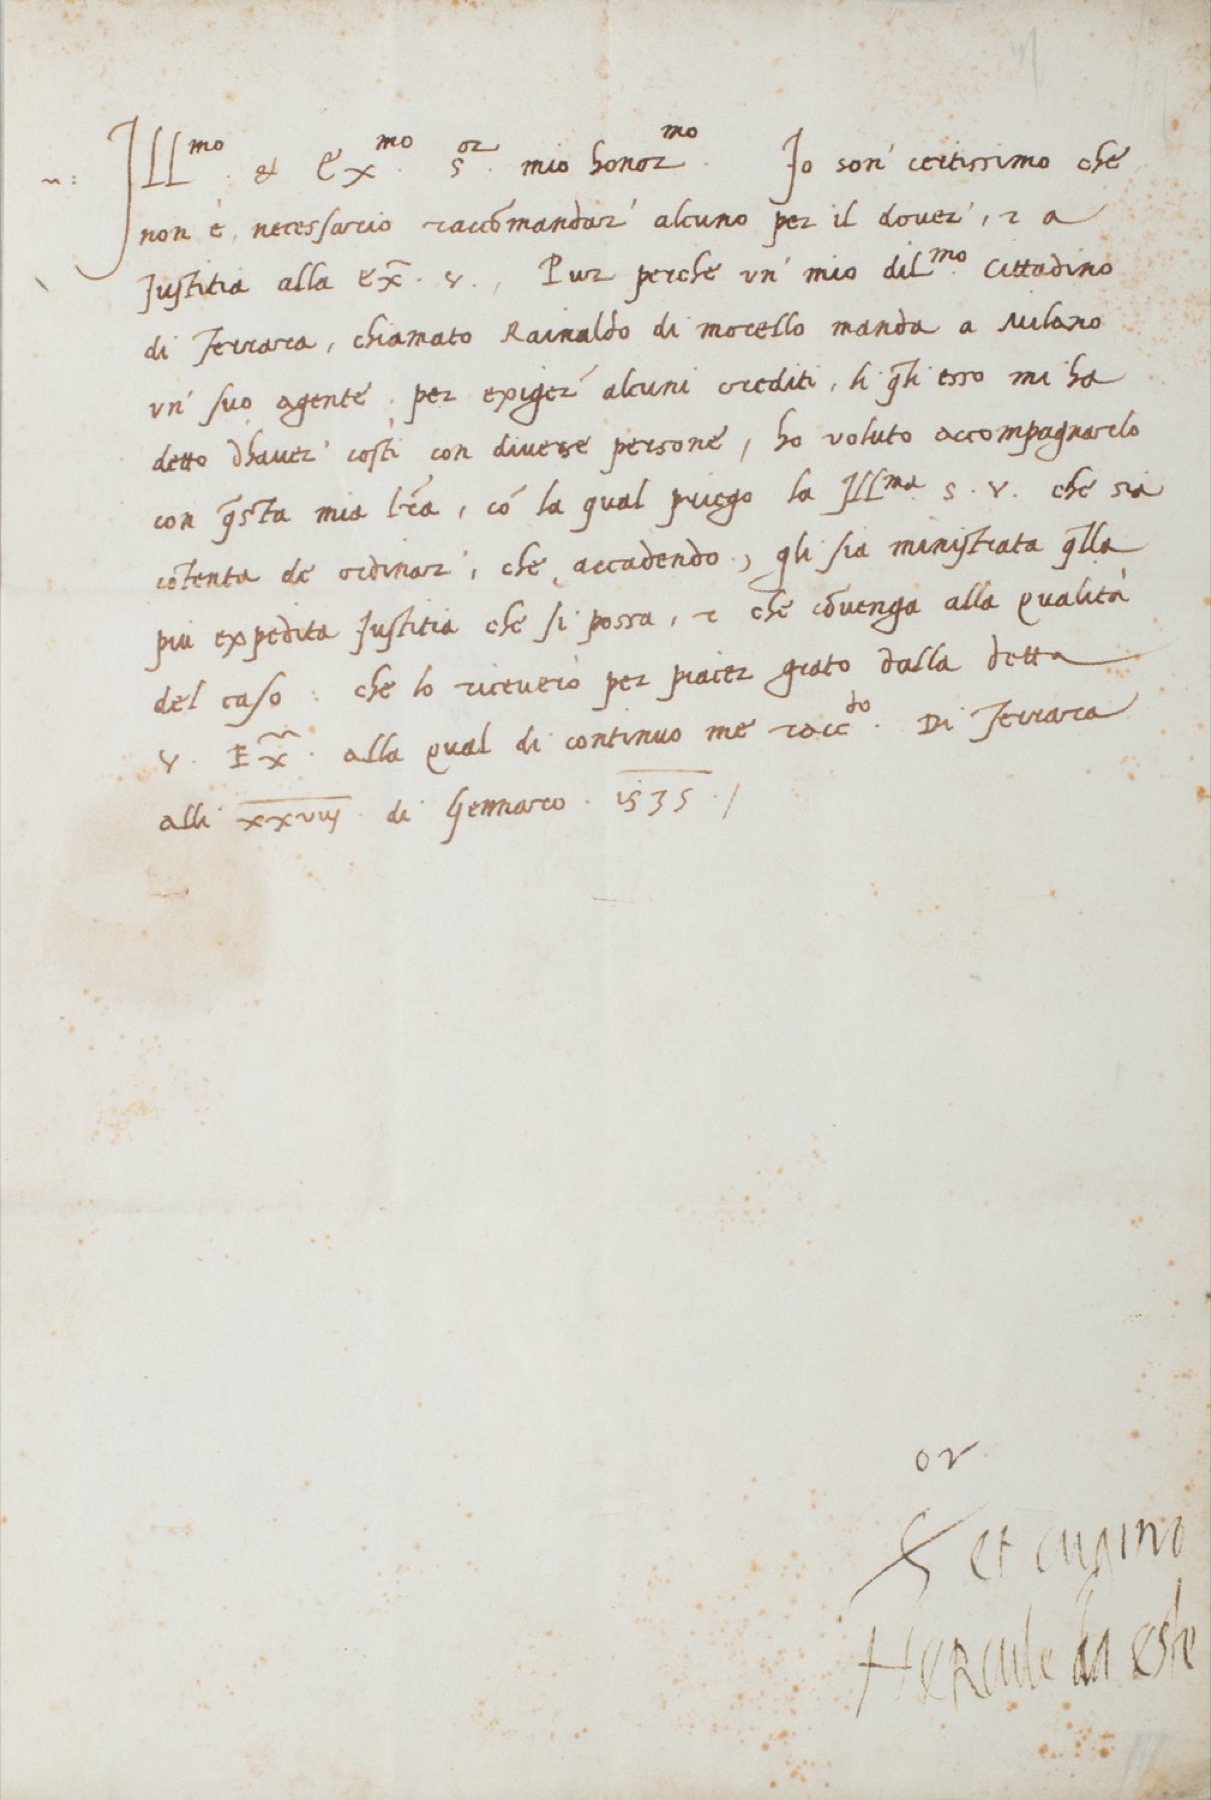 Ill^mo. et Ex^mo. S^or. mio honor^mo. Io son' certissimo che
non è, necessario raccōmandar' alcuno per il dover', et a
Justitia alla Ex̄. V., Pur perche un' mio dil^mo. Cittadino
di Ferrara, chiamato Rainaldo di morello manda a Milano
un' suo agente. per exiger' alcuni crediti, li q̄li esso mi ha
detto d'haver' costì con diverse persone, ho voluto accompagnarlo
con q̄sta mia lr̄a, cō la qual priego la Ill^ma. S. V. che sia
cōtenta de ordinar', che accadendo, gli sia ministrata q̄lla
più expedita Justitia che si possa, et che cōvenga alla qualità
del caso: che lo riceverò per piacer grato dalla detta
V. Ex̄. alla qual di continuo me racc^do. Di Ferrara
alli xxviij. di Gennaro. 1535./
or
S et cugino
Hercule da este